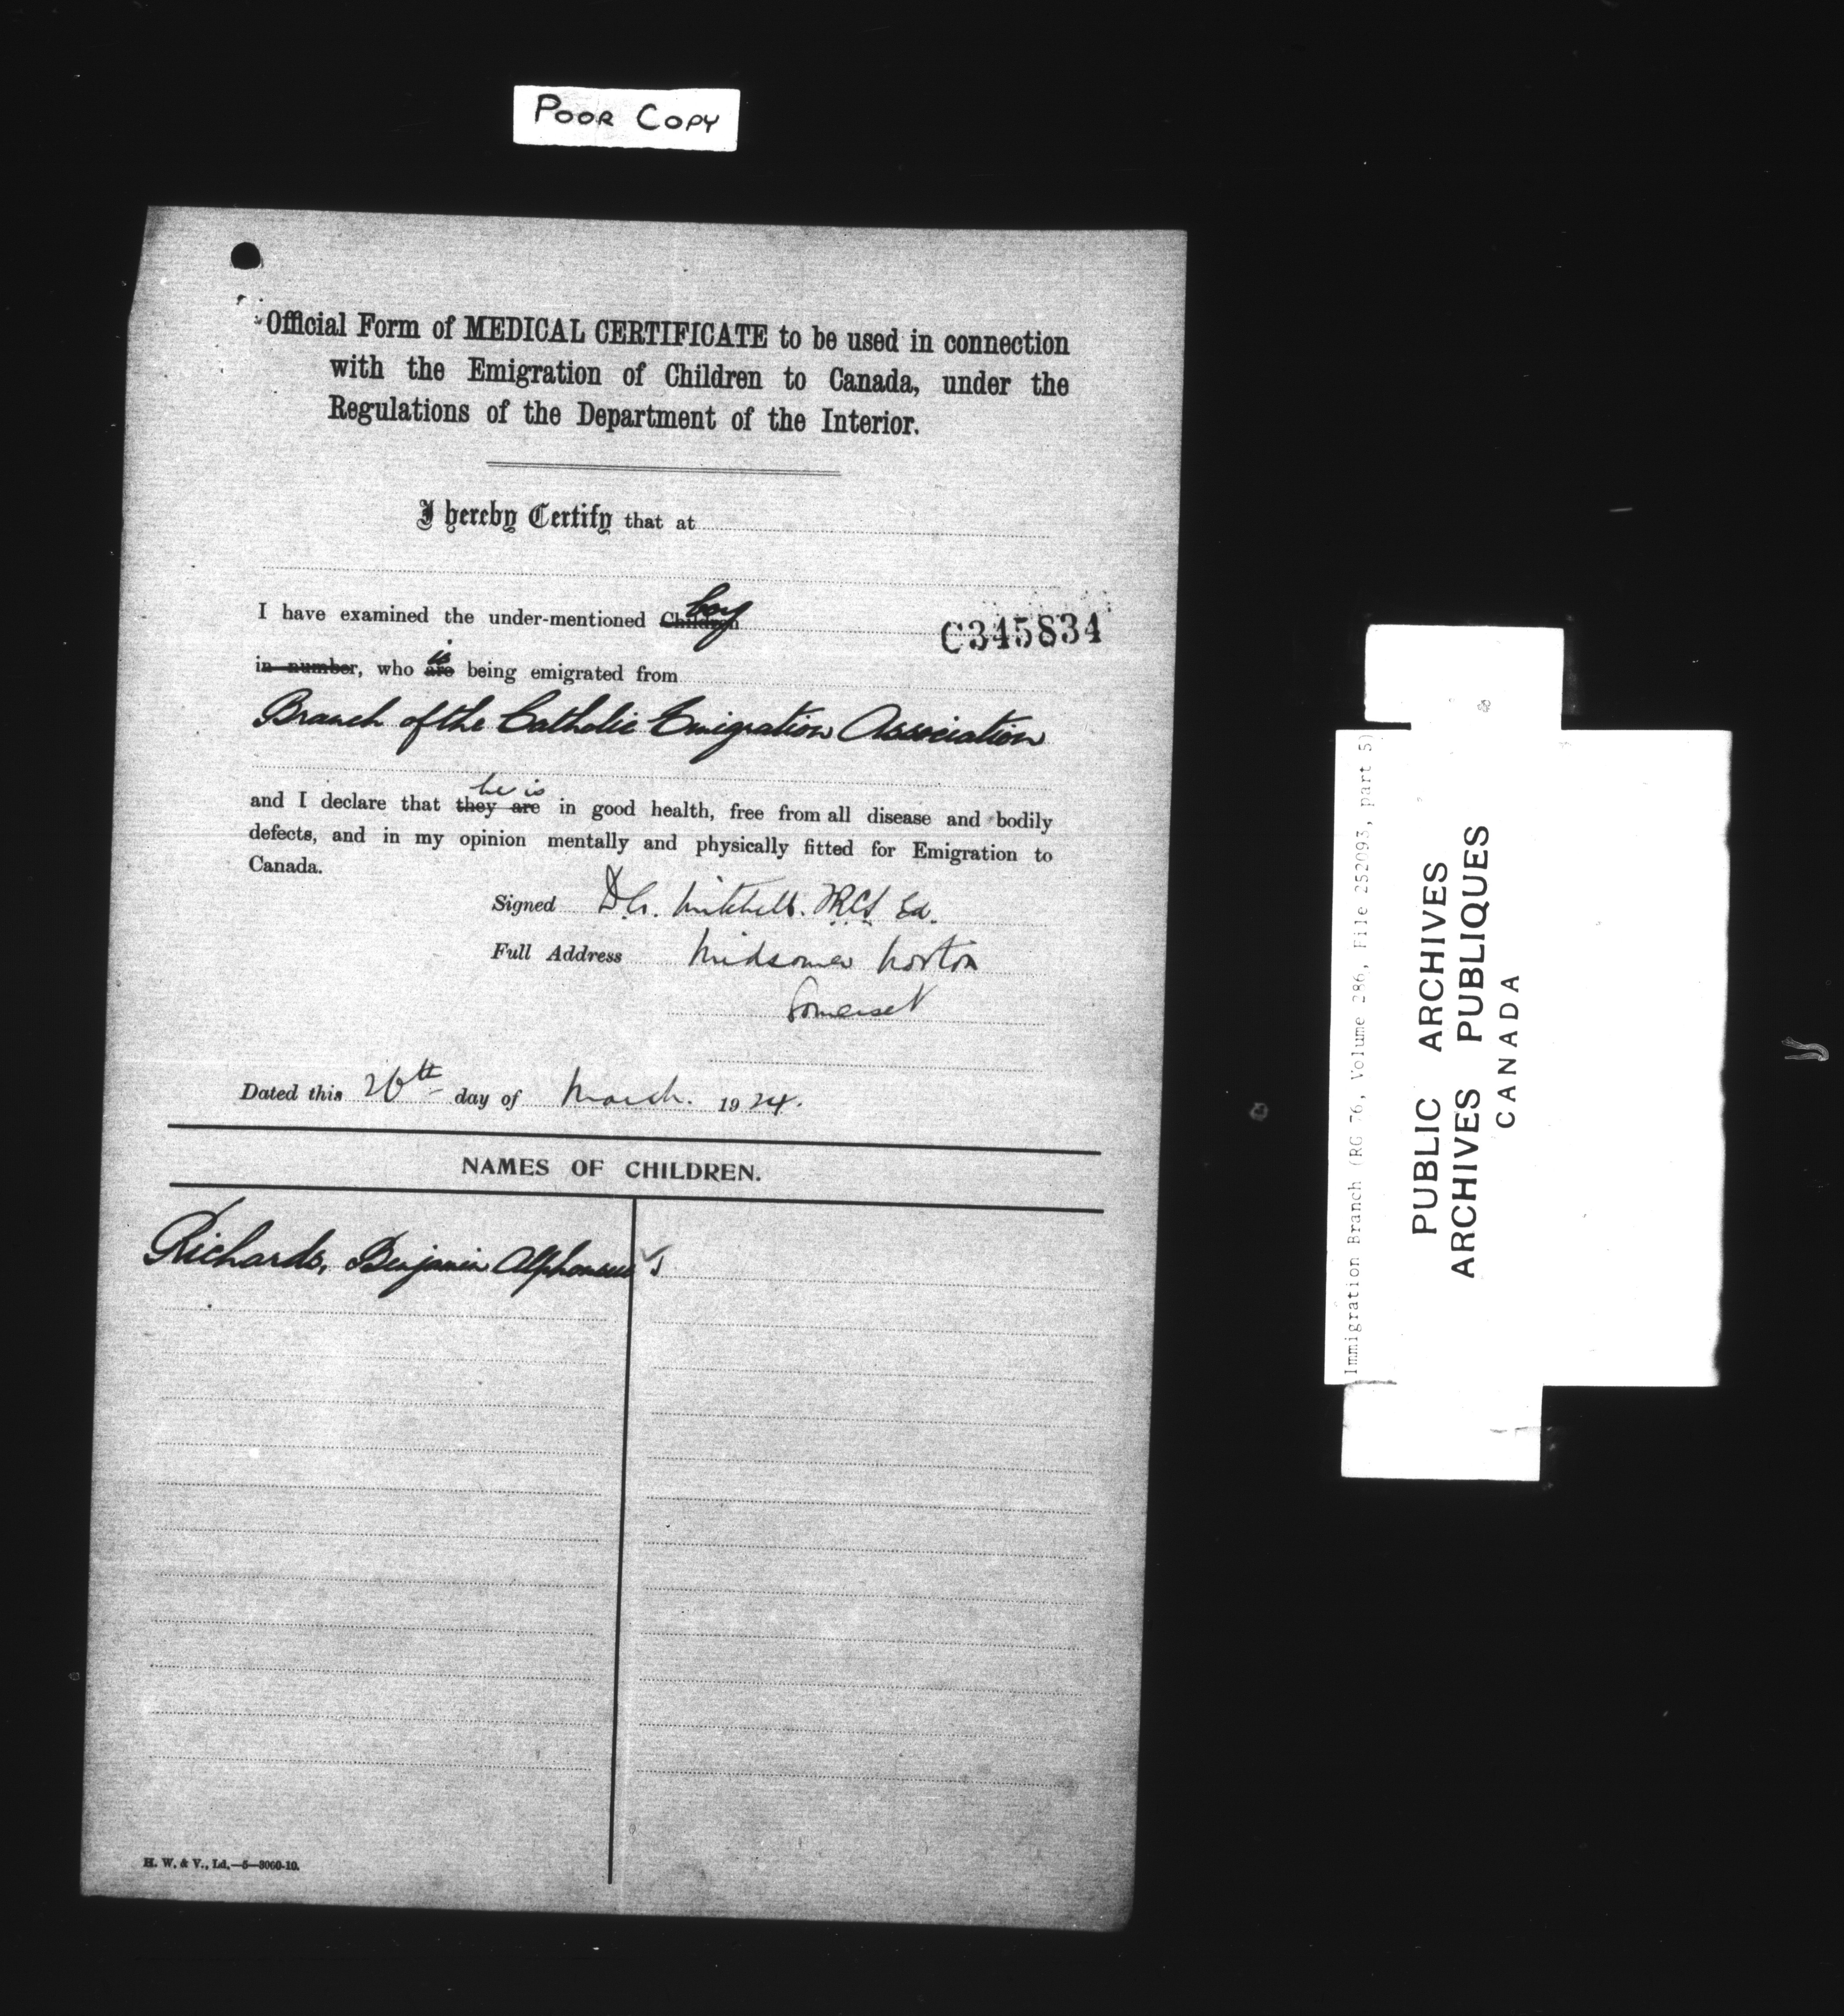 POOR COPY
Official Form of MEDICAL CERTIFICATE to be used in connection
with the Emigration of Children to Canada, under the
Regulations of the Department of the Interior.
I hereby Certify that at
boy
I have examined the under-mentioned Children
C345834
is
in number, who are being emigrated from
Branch of the Catholic Emigration Association
he is
and I declare that they are in good health, free from all disease and bodily
defects, and in my opinion mentally and physically fitted for Emigration to
Canada.
Signed D.G. Mitchell. FRCS Ed.
Full Address Midsomer Norton
Somerset
Dated this 26th day of March. 1924.
NAMES OF CHILDREN.
Richards, Benjamin Alphonsus
H. W. & V., Ld.—5—3060-10.
Immigration Branch (RG 76, Volume 286, File 252093, part 5)
PUBLIC ARCHIVES
ARCHIVES PUBLIQUES
CANADA